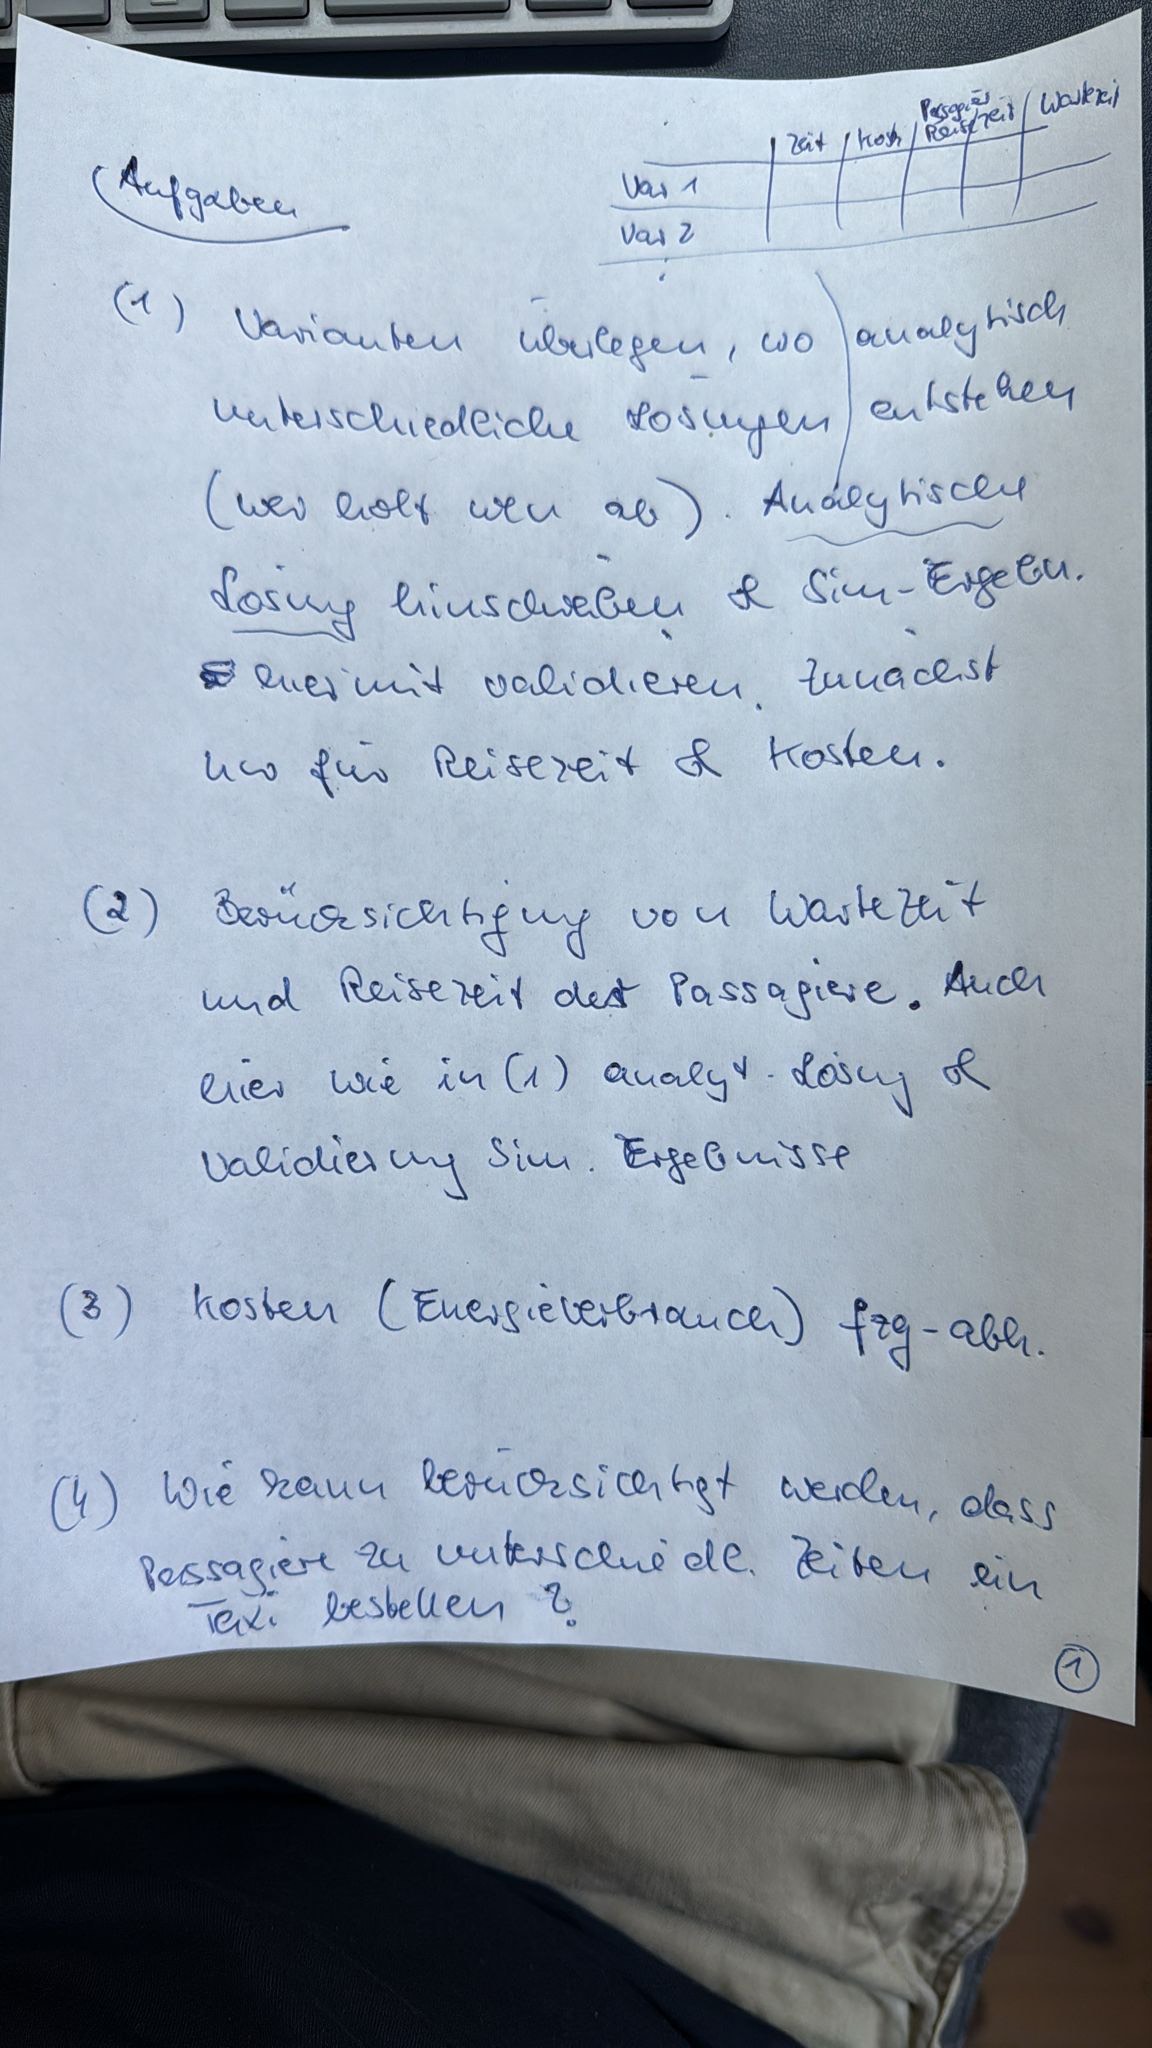 Aufgaben
Zeit Kost Passagier Reisezeit Wartezeit
Var 1
Var 2
(1) Varianten überlegen, wo analytisch
unterschiedliche Lösungen entstehen
(wer holt wen ab). Analytische
Lösung hinschreiben & Sim-Ergebn.
hiermit validieren. Zunächst
nur für Reisezeit & Kosten.
(2) Berücksichtigung von Wartezeit
und Reisezeit der Passagiere. Auch
hier wie in (1) analyt. Lösung &
Validierung Sim. Ergebnisse
(3) Kosten (Energieverbrauch) fzg-abh.
(4) Wie kann berücksichtigt werden, dass
Passagiere zu unterschiedl. Zeiten ein
Taxi bestellen?
1